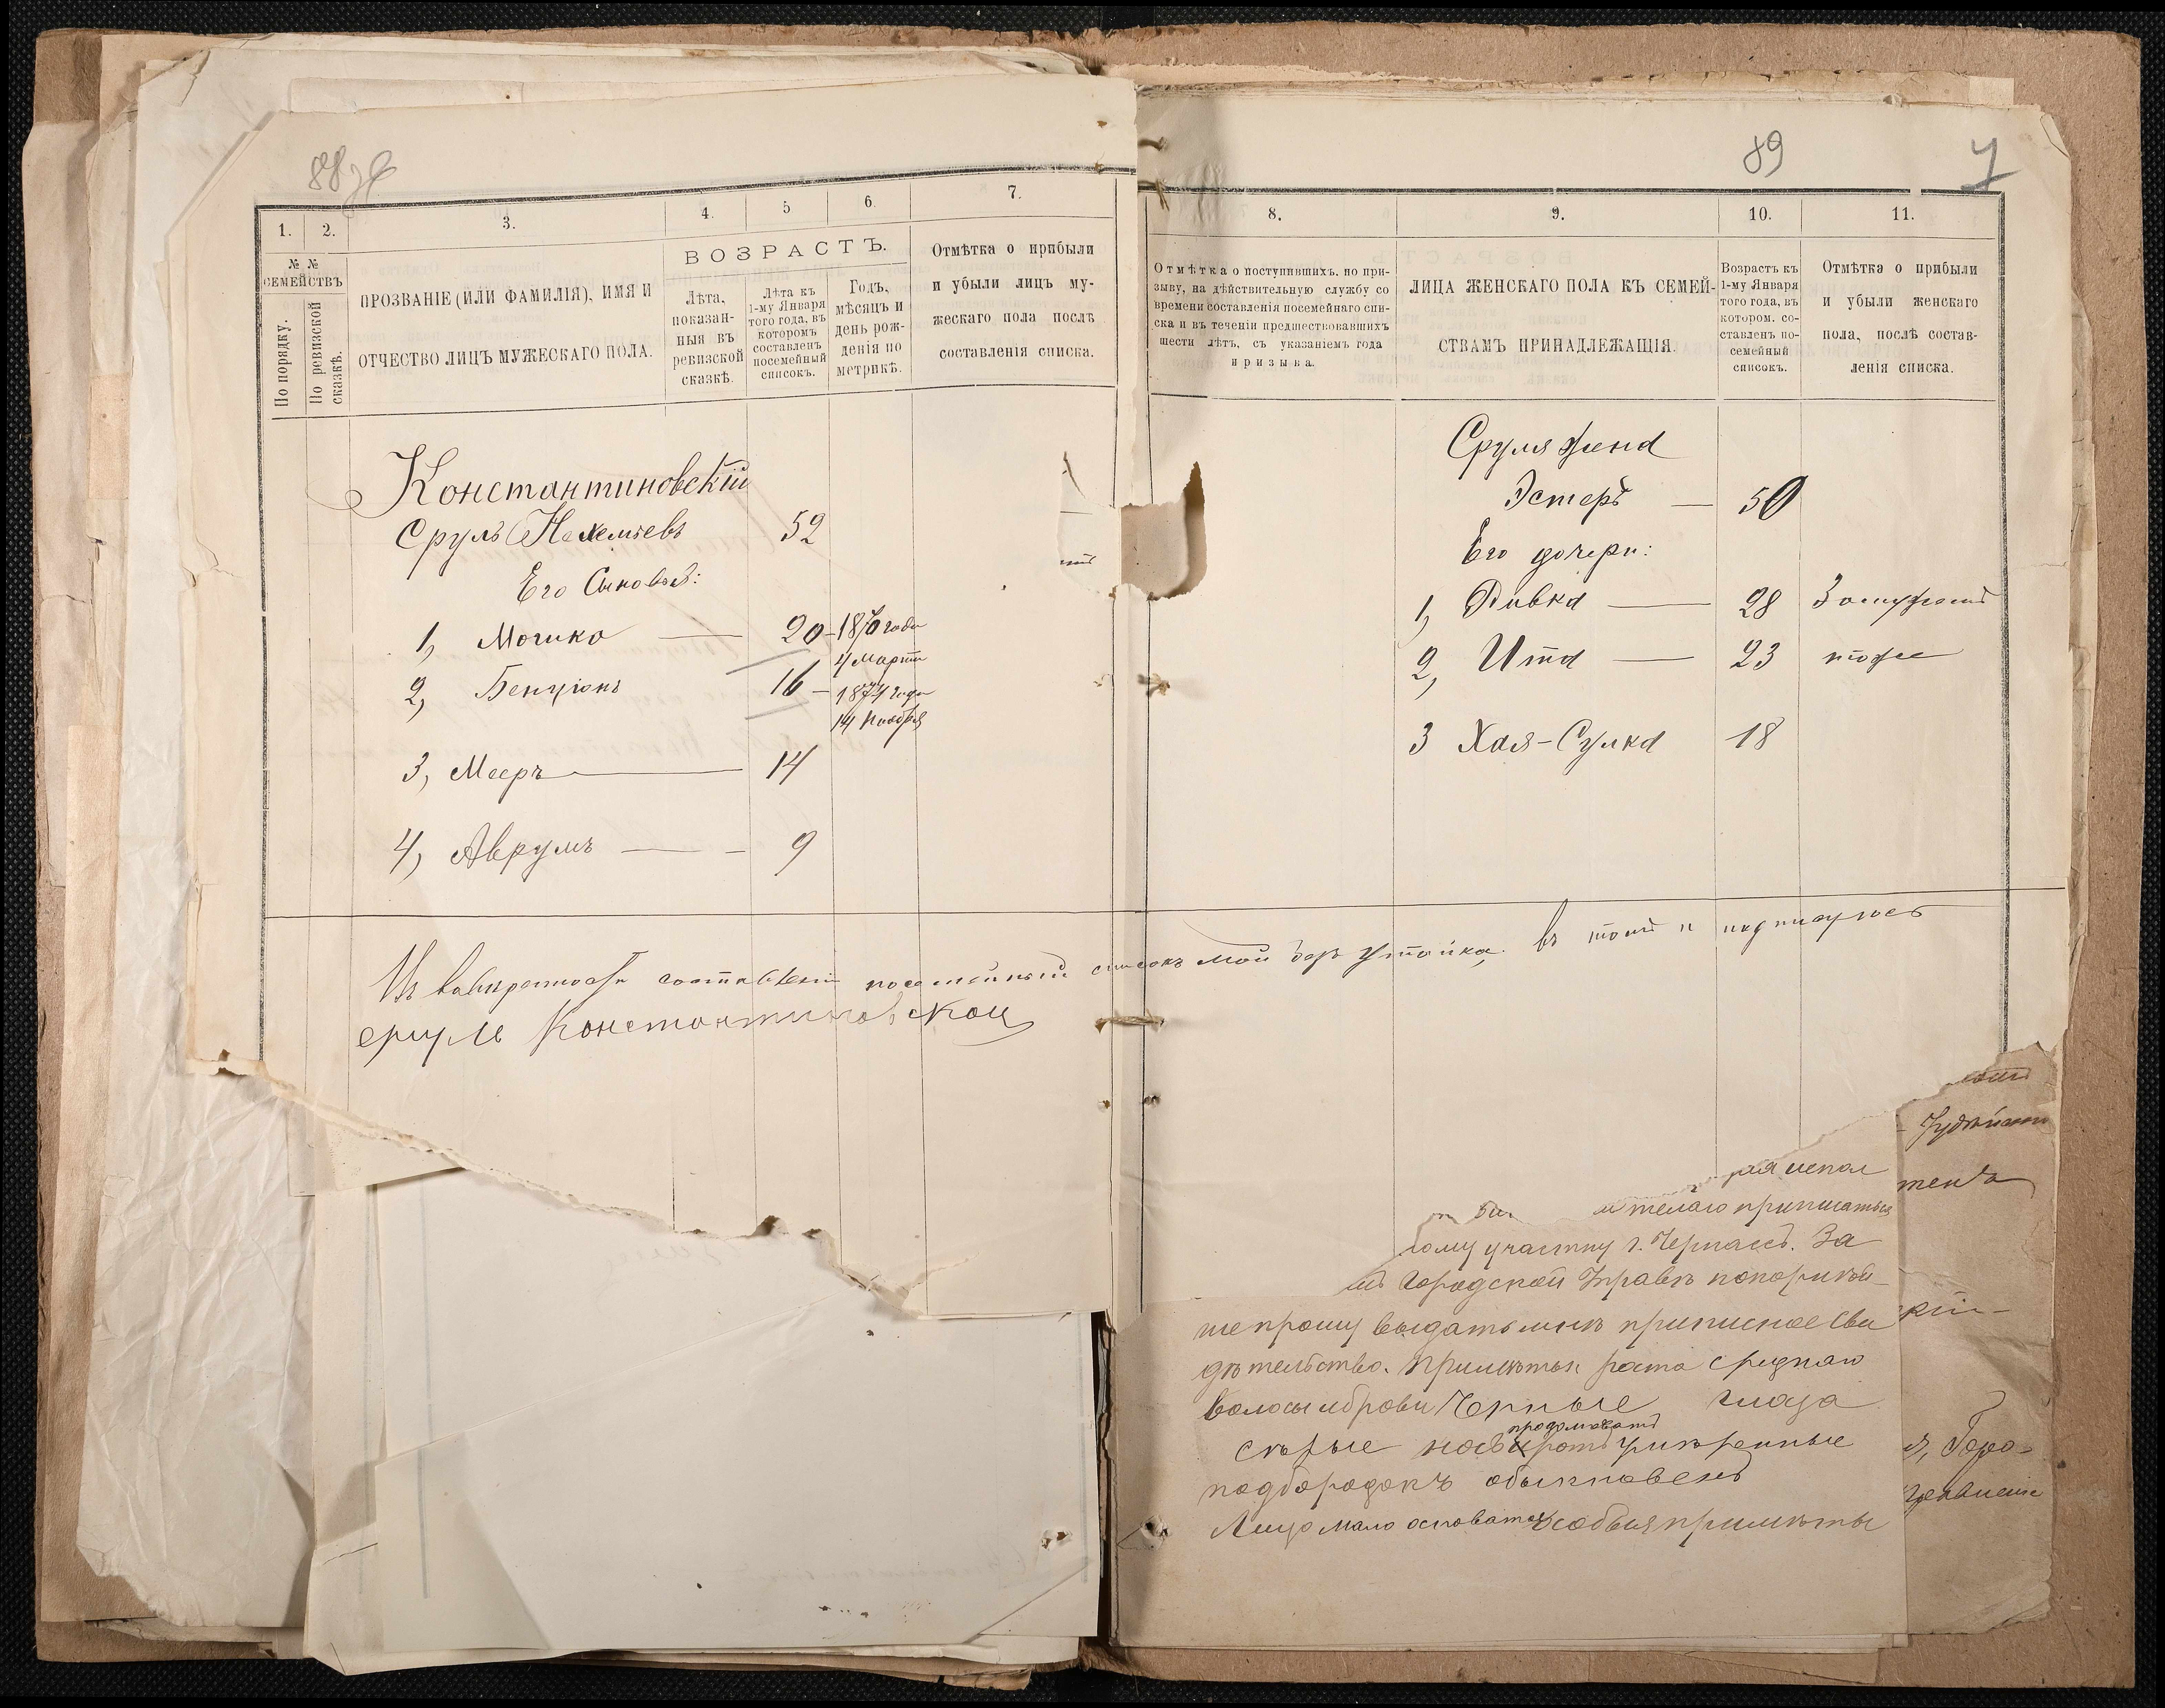 88 зв
1.
2.
3.
4.
5
6.
7.
№ №
СЕМЕЙСТВЪ
По порядку.
По ревизской
сказкѣ.
ПРОЗВАНІЕ (ИЛИ ФАМИЛІЯ), ИМЯ И
ОТЧЕСТВО ЛИЦЪ МУЖЕСКАГО ПОЛА.
ВОЗРАСТЪ.
Лѣта,
показан-
ныя въ
ревизской
сказкѣ.
Лѣта къ
1-му Января
того года, въ
которомъ
составленъ
посемейный
списокъ.
Годъ,
мѣсяцъ и
день рож-
денія по
метрикѣ.
Отмѣтка о прибыли
и убыли лицъ му-
жескаго пола послѣ
составленія списка.
Константиновскій
Сруль Нахемьевъ 52
Его Сыновья:
1, Мошко — 20 – 1870 года
4 Марта
2, Бенціонъ 16 – 1874 года
14 Ноября
3, Мееръ — 14
4, Аврумъ — 9
89
7
8.
9.
10.
11.
Отмѣтка о поступившихъ, по при-
зыву, на дѣйствительную службу со
времени составленія посемейнаго спи-
ска и въ теченіи предшествовавшихъ
шести лѣтъ, съ указаніемъ года
призыва.
ЛИЦА ЖЕНСКАГО ПОЛА КЪ СЕМЕЙ-
СТВАМЪ ПРИНАДЛЕЖАЩІЯ.
Возрастъ къ
1-му Января
того года, въ
котором. со-
ставленъ по-
семейный
списокъ.
Отмѣтка о прибыли
и убыли женскаго
пола, послѣ состав-
ленія списка.
Сруля жена
Эстеръ — 50
Его дочери:
1, Ривка — 28 Замужемъ
2, Ита — 23 тоже
3 Хая-Сулка 18
посемейный списокъ мой безъ утайки, въ томъ и подписуюсь
сруль Константиновской
желаю приписаться
участку г. Черкассъ. За
Городской Управѣ покорнѣй-
ше прошу выдать мнѣ приписное сви
дѣтельство. Примѣты: роста средняго
волосы и брови Черные глаза
сѣрые носъ продолговатъ и ротъ умѣренные
подбородокъ обыкновенъ
Лицо мало особыя примѣты